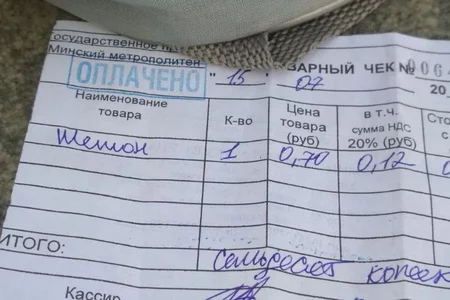 осударственное
Минский метрополитен
ОПЛАЧЕНО
АРНЫЙ ЧЕК № 006
" 15 " 07 20
Наименование товара К-во Цена товара (руб) в т.ч. сумма НДС 20% (руб) Сто с
Жетон 1 0,70 0,12
ИТОГО: семьдесят копеек
Кассир